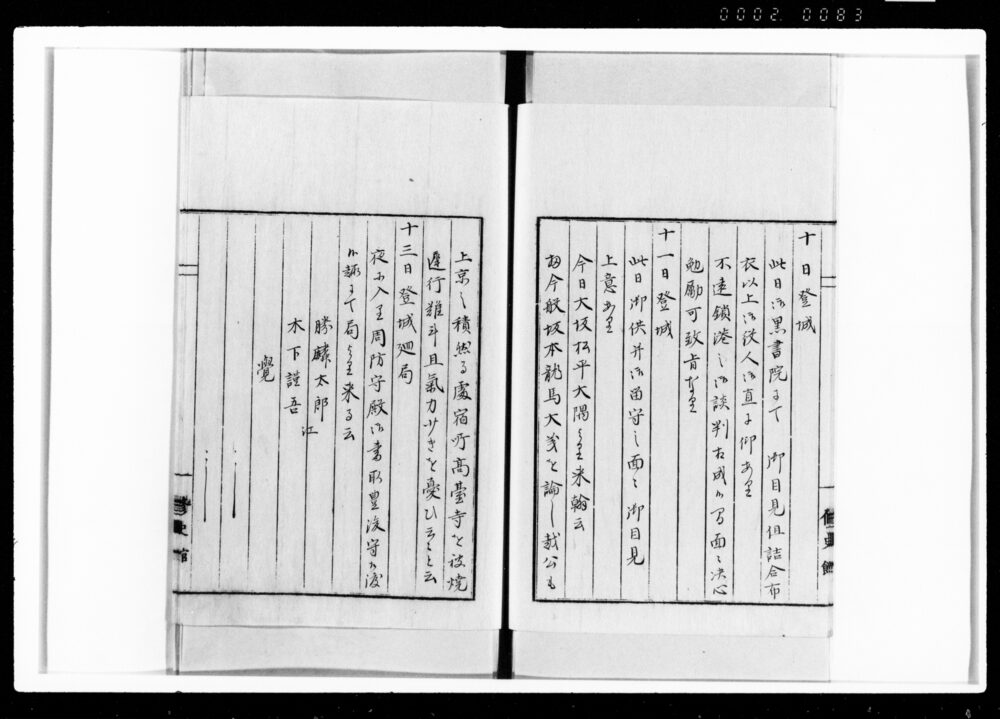 0002 0083
十日登城
此日於黒書院ニて 御目見但詰合布
衣以上於役人江直ニ被仰あり
不遠鎖港之御談判相成候間面々决心
勉励可致旨なり
十一日登城
此日御供并御留守之面々御目見
上意あり
今日大坂松平大隅より来翰云
扨今般坂本龍馬大義を論し越公も
上京之積然る處宿所高臺寺を被焼
遅行難斗且氣力少きを憂ひ云々と云
十三日登城廻局
夜ニ入至周防守殿御書取豊後守より渡
小話ニて局より来る云
勝麟太郎 江
木下謹吾
覺
修史館
修史館